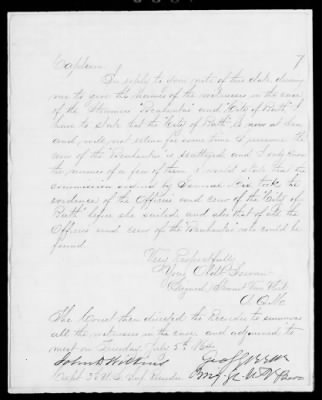 7
Captain
In reply to your note of this date, desiring
me to give the names of the witnesses in the case
of the Steamers "Pocahontas" and "City of Bath" I
have to state that the "City of Bath" is now at Sea
and will not return for some time to
crew of the Pocahontas is scattered and I only know
the names of a few of them, I would state that the
commission ordered by General took the
evidence of the Officers and crew of the "City of
Bath" before she sailed, and also that of all the
Officers and crew of the "Pocahontas" who could be
found.
Very Respectfully
Your Obdt. Servant
(Signed) Stewart Van Vliet
A. Q. M.
The Court then directed the Recorder to summon
all the witnesses in the case, and adjourned to
meet on Tuesday July 5th 1864
John D Wilkins
Capt 3d U.S. Inf. Recorder